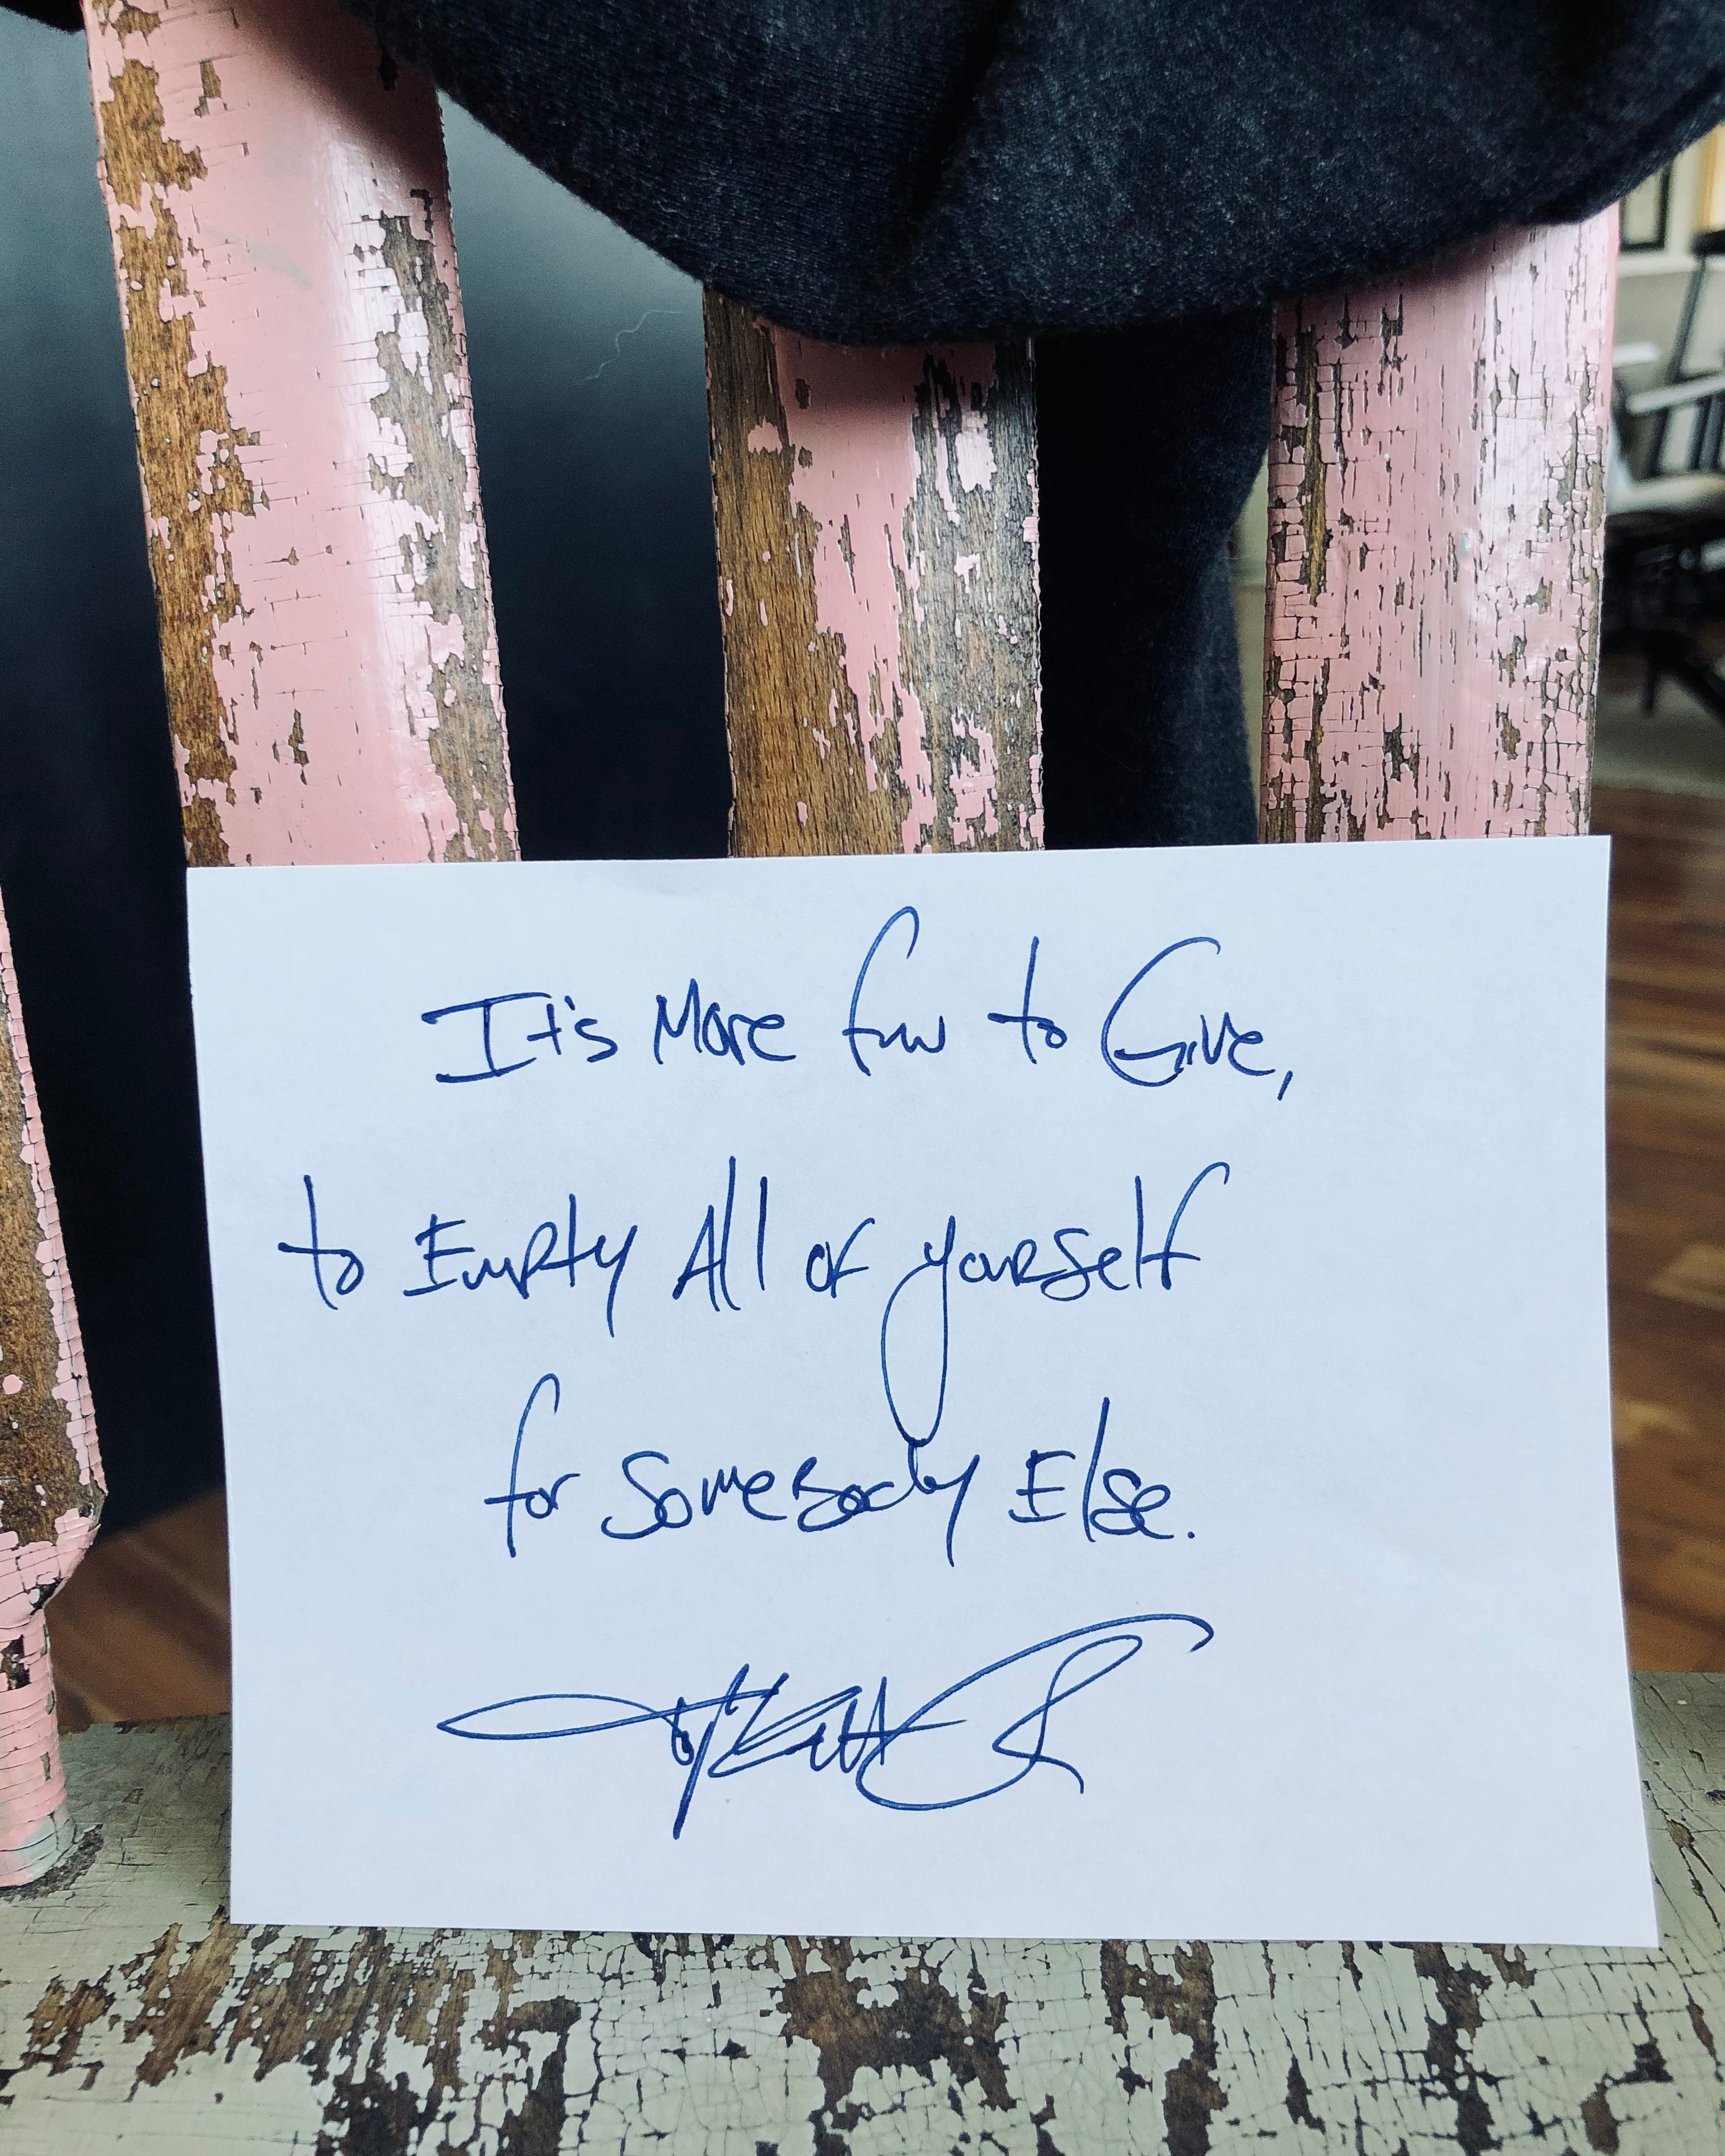 It's More fun to Give,
to Empty All of yourself
for Somebody Else.